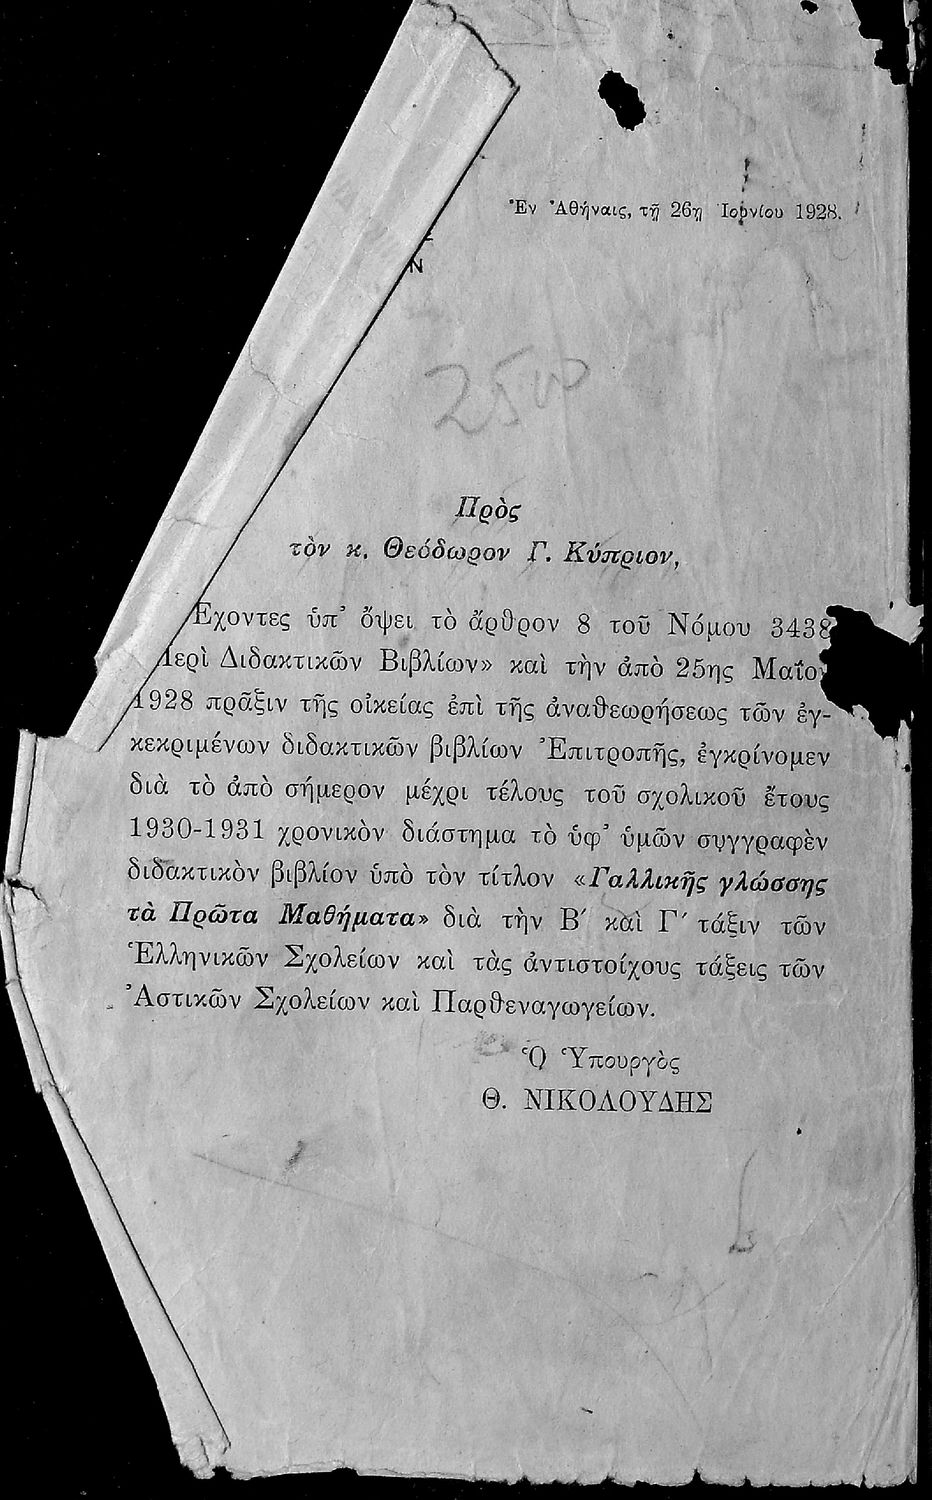 Ἐν Ἀθήναις, τῇ 26ῃ Ἰουνίου 1928.
Ν
2500
Πρὸς
τὸν κ. Θεόδωρον Γ. Κύπριον,
Ἔχοντες ὑπ’ ὄψει τὸ ἄρθρον 8 τοῦ Νόμου 3438
Περὶ Διδακτικῶν Βιβλίων» καὶ τὴν ἀπὸ 25ης Μαΐου
1928 πρᾶξιν τῆς οἰκείας ἐπὶ τῆς ἀναθεωρήσεως τῶν ἐγ-
κεκριμένων διδακτικῶν βιβλίων Ἐπιτροπῆς, ἐγκρίνομεν
διὰ τὸ ἀπὸ σήμερον μέχρι τέλους τοῦ σχολικοῦ ἔτους
1930-1931 χρονικὸν διάστημα τὸ ὑφ’ ὑμῶν συγγραφὲν
διδακτικὸν βιβλίον ὑπὸ τὸν τίτλον «Γαλλικῆς γλώσσης
τὰ Πρῶτα Μαθήματα» διὰ τὴν Β΄ καὶ Γ΄ τάξιν τῶν
Ἑλληνικῶν Σχολείων καὶ τὰς ἀντιστοίχους τάξεις τῶν
Ἀστικῶν Σχολείων καὶ Παρθεναγωγείων.
Ὁ Ὑπουργὸς
Θ. ΝΙΚΟΛΟΥΔΗΣ